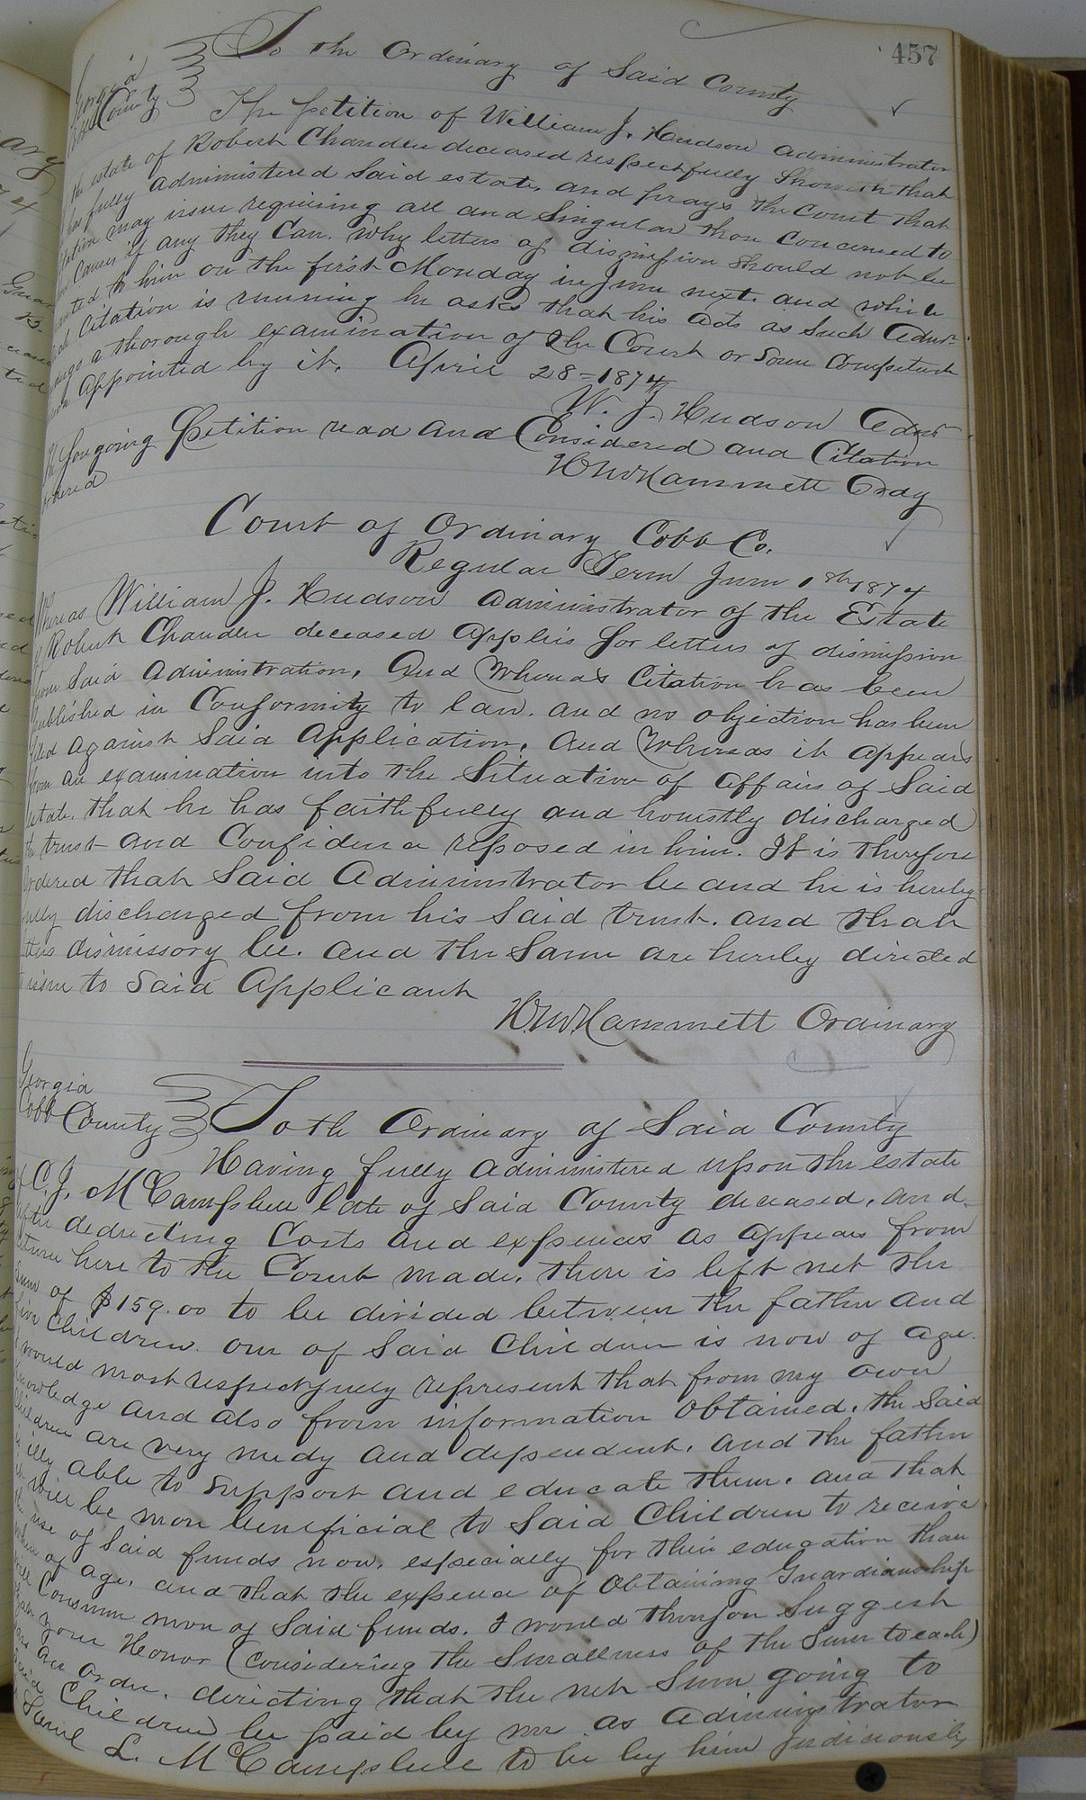 457
Georgia
Cobb County
To the Ordinary of Said County
The Petition of William J. Hudson administrator
the estate of Robert Chandler deceased respectfully Showeth that
has fully administered Said estate, and prays the Court that
Citation may issue requiring all and Singular those Concerned to
Causes if any they Can. Why letters of dismission should not be
granted to him on the first Monday in June next. and while
Citation is running he asks that his acts as Such Admr
a thorough examination of the Court or Some Competent
appointed by it. April 28 = 1874
W. J. Hudson Admr
The foregoing Petition read and Considered and Citation
ordered
H M Hammett Ordy
Court of Ordinary Cobb Co.
Regular Term June 1st 1874
Whereas William J. Hudson administrator of the Estate
of Robert Chandler deceased applies for letters of dismission
from Said Administration, And Whereas Citation has been
published in Conformity to law. and no objection has been
filed against Said Application, And Whereas it appears
from an examination into the Situation of affairs of Said
Estate, that he has faithfully and honestly discharged
the trust and Confidence reposed in him. It is therefore
ordered that Said Administrator be and he is hereby
fully discharged from his Said trust. and that
letters dismissory be. and the Same are hereby directed
to issue to Said Applicant
H M Hammett Ordinary
Georgia
Cobb County
To the Ordinary of Said County
Having fully administered upon the estate
of C. J. McCampbell late of Said County deceased, and
after deducting Costs and expenses as appears from
return here to the Court made, there is left net the
Sum of $159.00 to be divided between the father and
five Children. one of Said Children is now of age.
I would most respectfully represent that from my own
knowledge and also from information obtained, the Said
Children are very needy and dependent, and the father
is illy able to support and educate them. and that
it will be more beneficial to Said Children to receive
the use of Said funds now, especially for their education than
when of age, and that the expense of obtaining Guardianship
will Consume most of Said funds. I would therefore Suggest
that your Honor (considering the Smallness of the Sum to each)
pass an order, directing that the net Sum going to
Said Children be paid by me as administrator
to Saml L. McCampbell to be by him judiciously